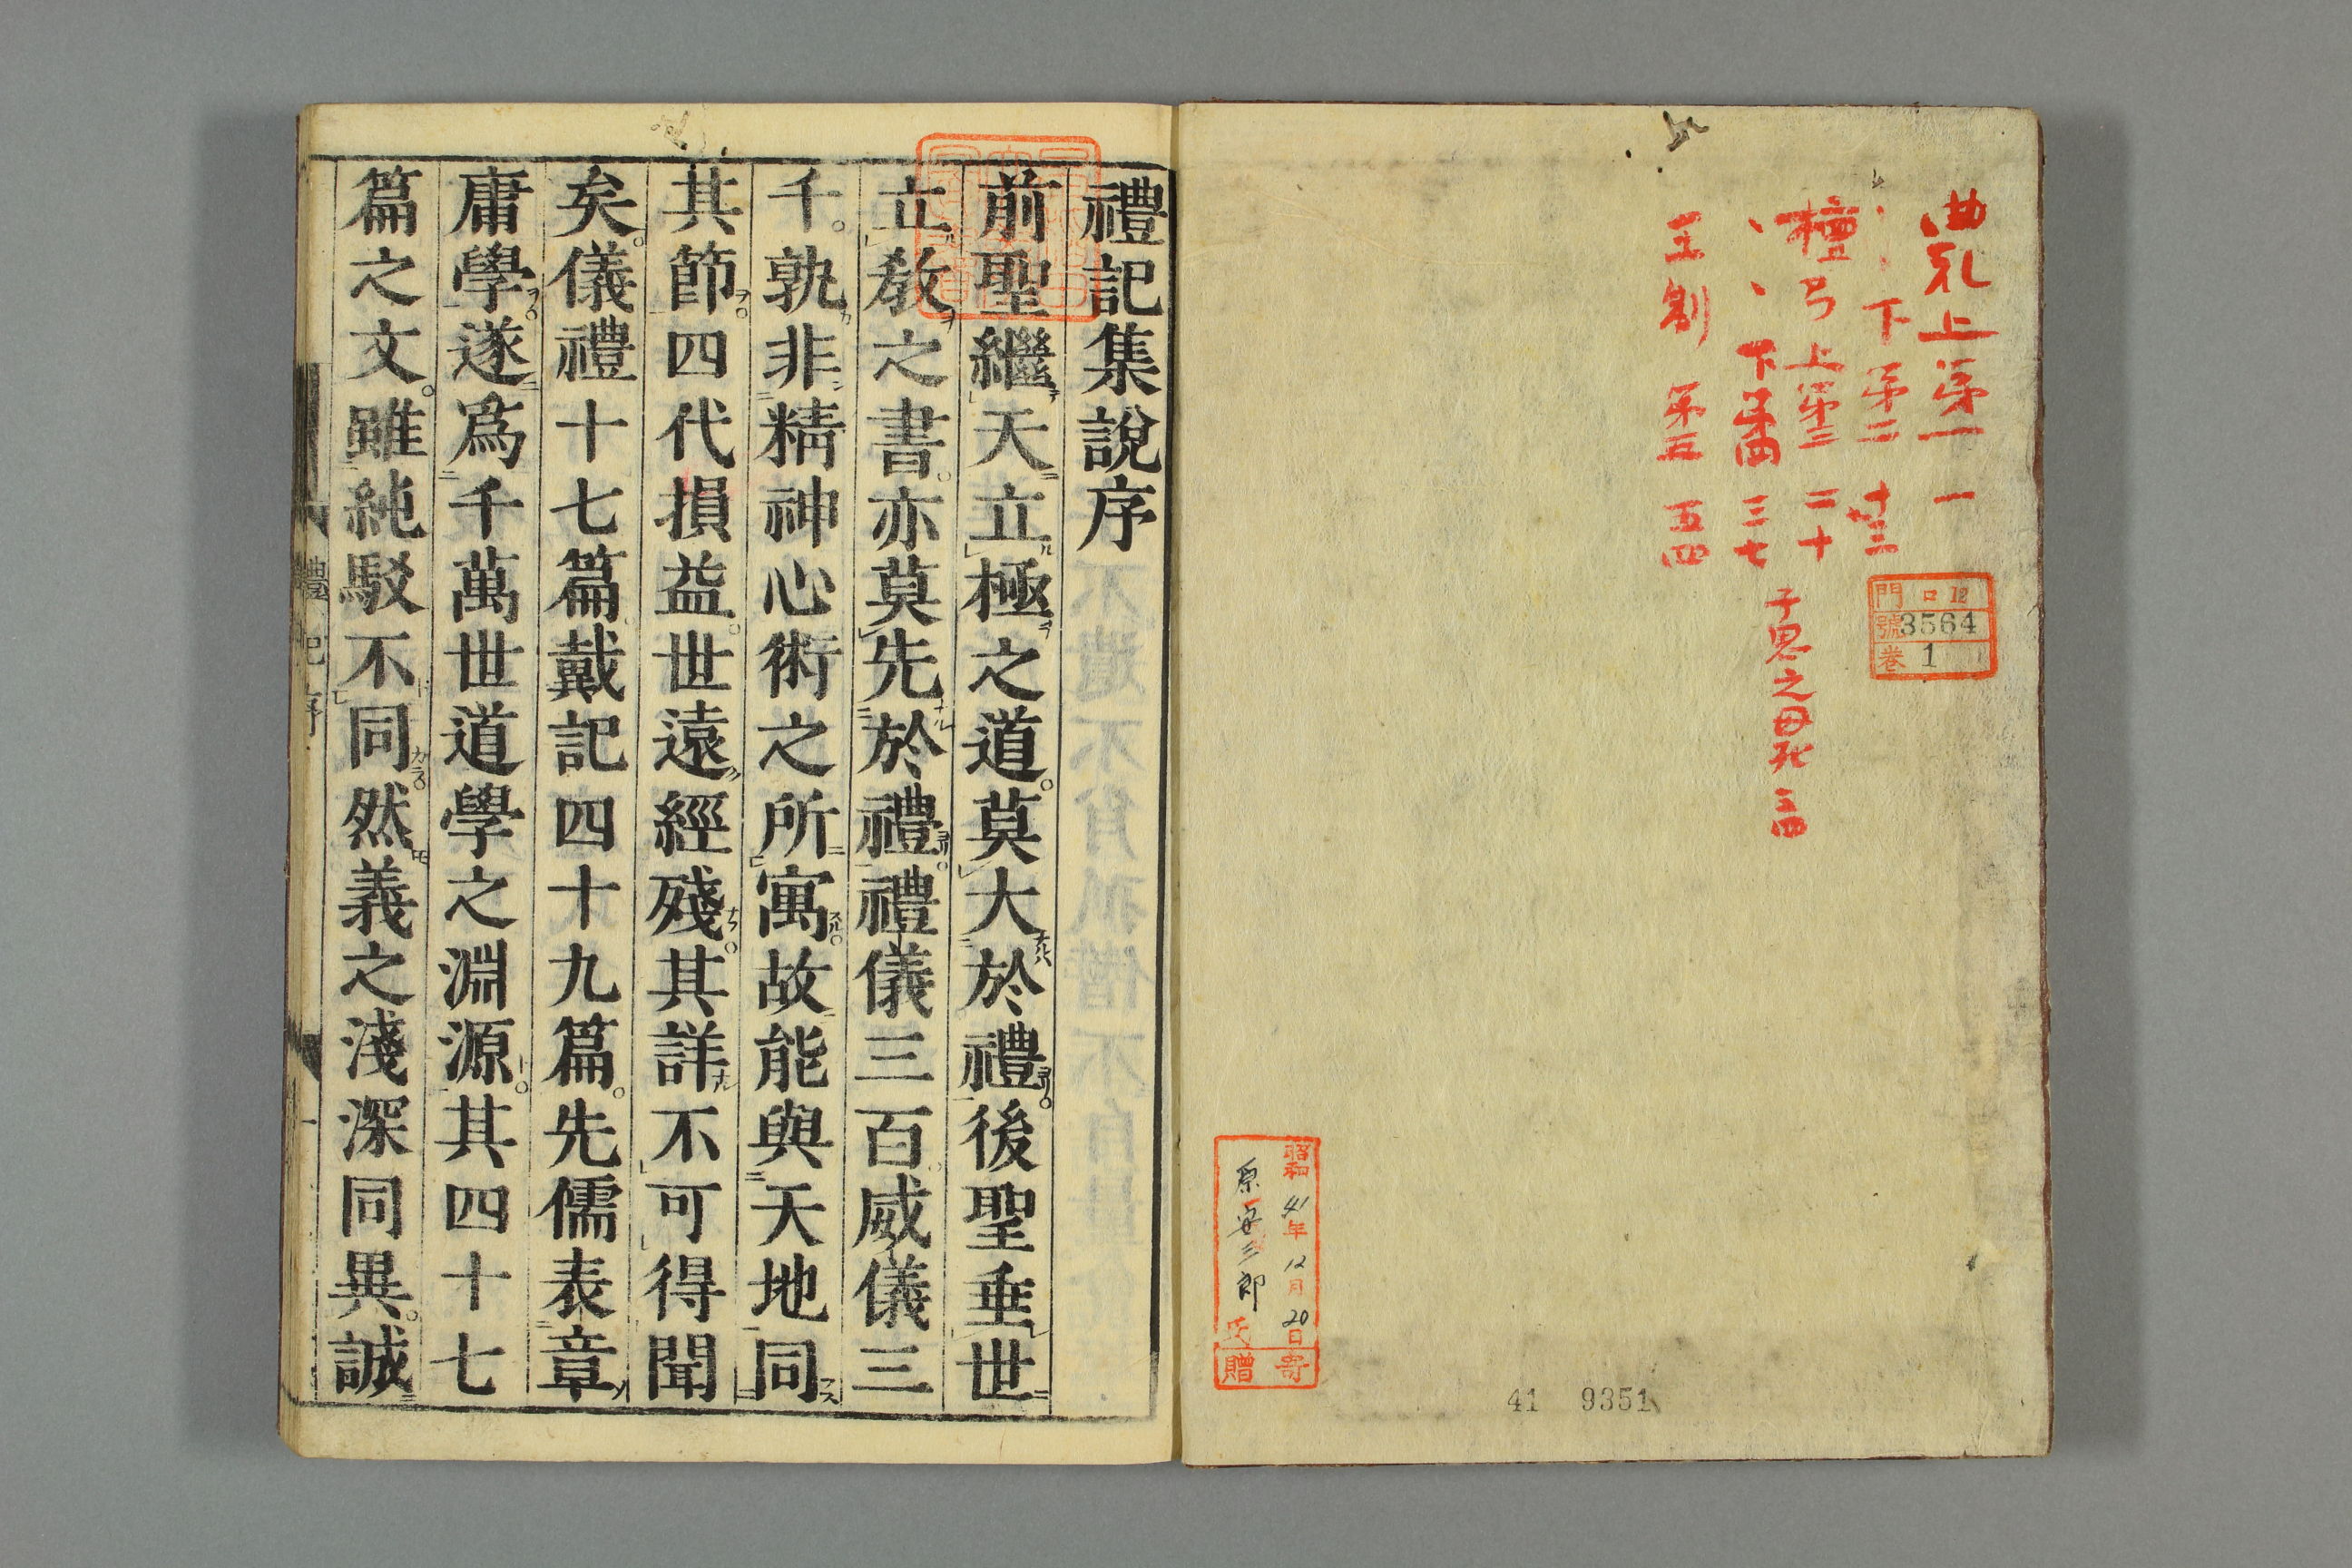 曲礼上 第一 一
〻 下 第二 十三
檀弓 上 第三 二十
〻〻 下 第四 三七
子思之母死 三四
王制 第五 五四
門 ロ12
號 3564
卷 1
昭和41年12月20日寄
原安三郎氏贈
41 9351
禮記集說序
前聖繼天立極之道。莫大於禮。後聖垂世
立教之書。亦莫先於禮。禮儀三百。威儀三
千。孰非精神心術之所寓。故能與天地同
其節。四代損益。世遠經殘。其詳不可得聞
矣。儀禮十七篇。戴記四十九篇。先儒表章
庸學。遂爲千萬世道學之淵源。其四十七
篇之文。雖純駁不同。然義之淺深同異。誠
禮記序